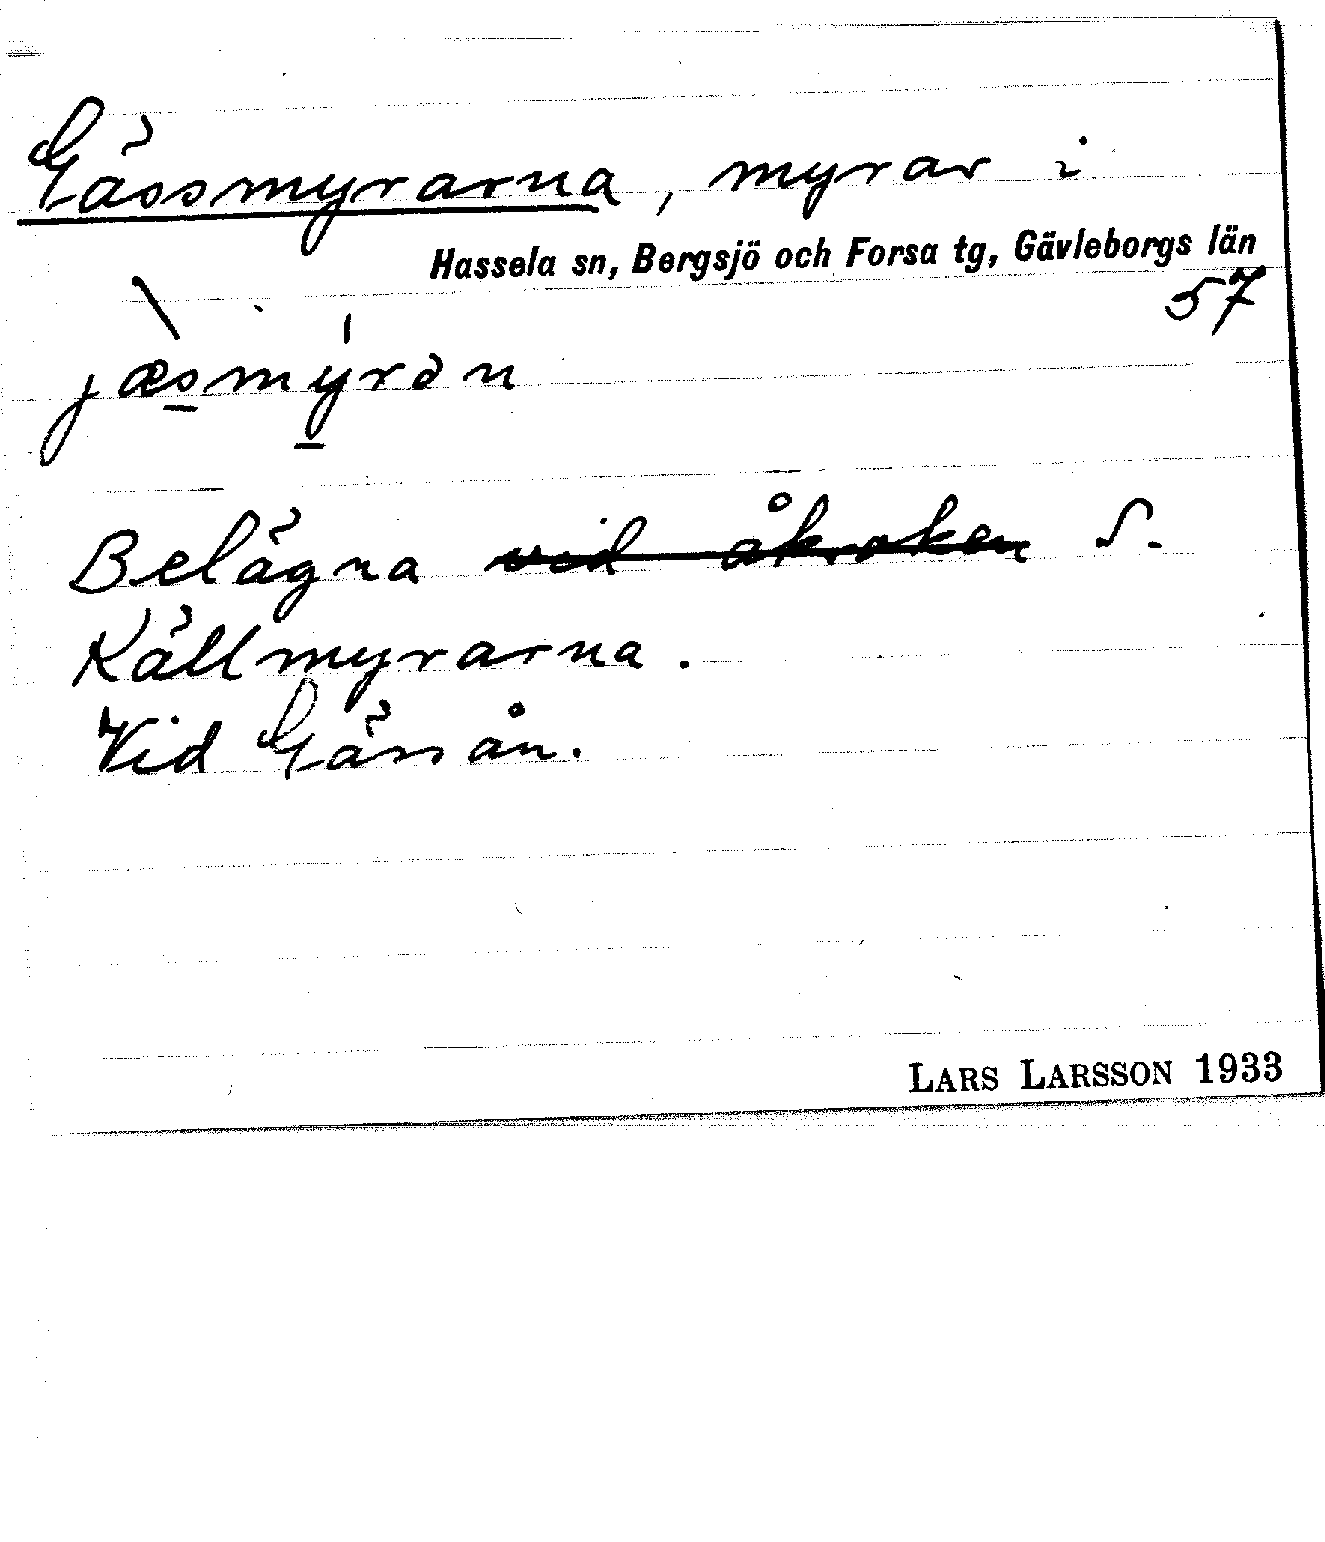 Gässmyrarna, myrar i
Hassela sn, Bergsjö och Forsa tg, Gävleborgs län
57
jæsmyrən
Belägna vid åkroken S.
Källmyrarna.
Vid Gässån.
LARS LARSSON 1933